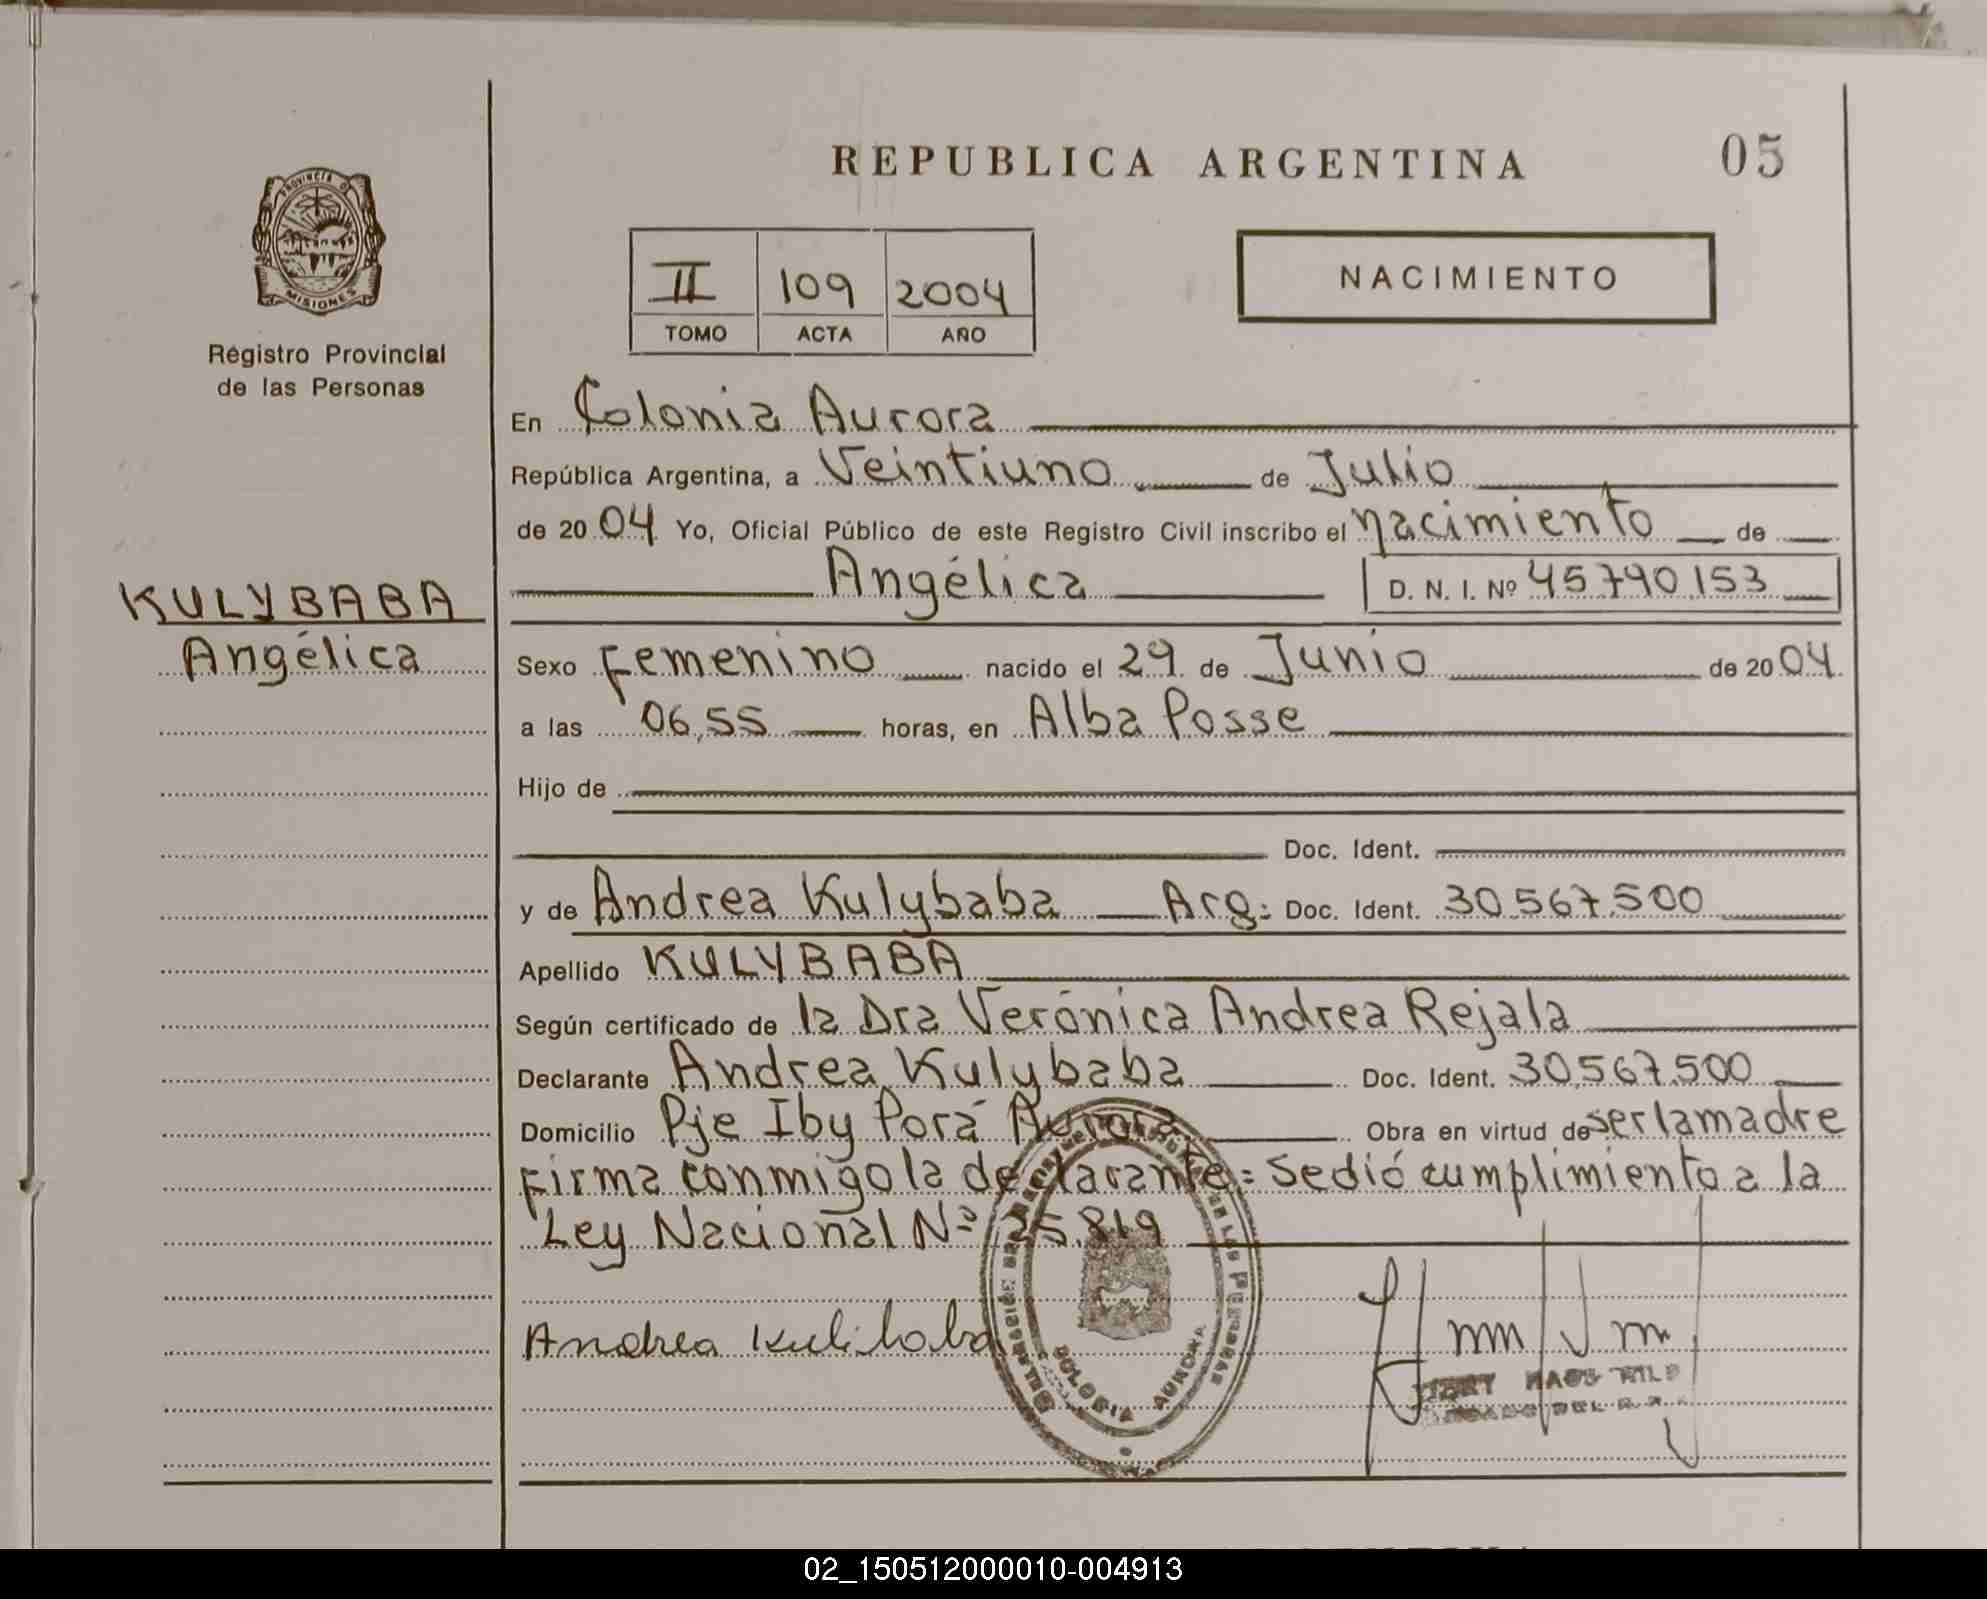 REPUBLICA ARGENTINA
05
PROVINCIA D
MISIONES
Registro Provincial
de las Personas
II 109 2004
TOMO ACTA AÑO
NACIMIENTO
En Colonia Aurora
República Argentina, a Veintiuno de Julio
de 2004 Yo, Oficial Público de este Registro Civil inscribo el nacimiento de
Angélica D. N. I. Nº 45790.153
KULYBABA
Angélica
Sexo Femenino nacido el 29 de Junio de 2004
a las 06,55 horas, en Alba Posse
Hijo de
Doc. Ident.
y de Andrea Kulybaba Arg: Doc. Ident. 30.567.500
Apellido KULYBABA
Según certificado de la Dra Verónica Andrea Rejala
Declarante Andrea Kulybaba Doc. Ident. 30.567.500
Domicilio Pje Iby Porá Aurora Obra en virtud de ser la madre
Firma conmigo la declarante= Se dió cumplimiento a la
Ley Nacional Nº 25.819
Andrea Kulibaba
COLONIA AURORA
02_150512000010-004913